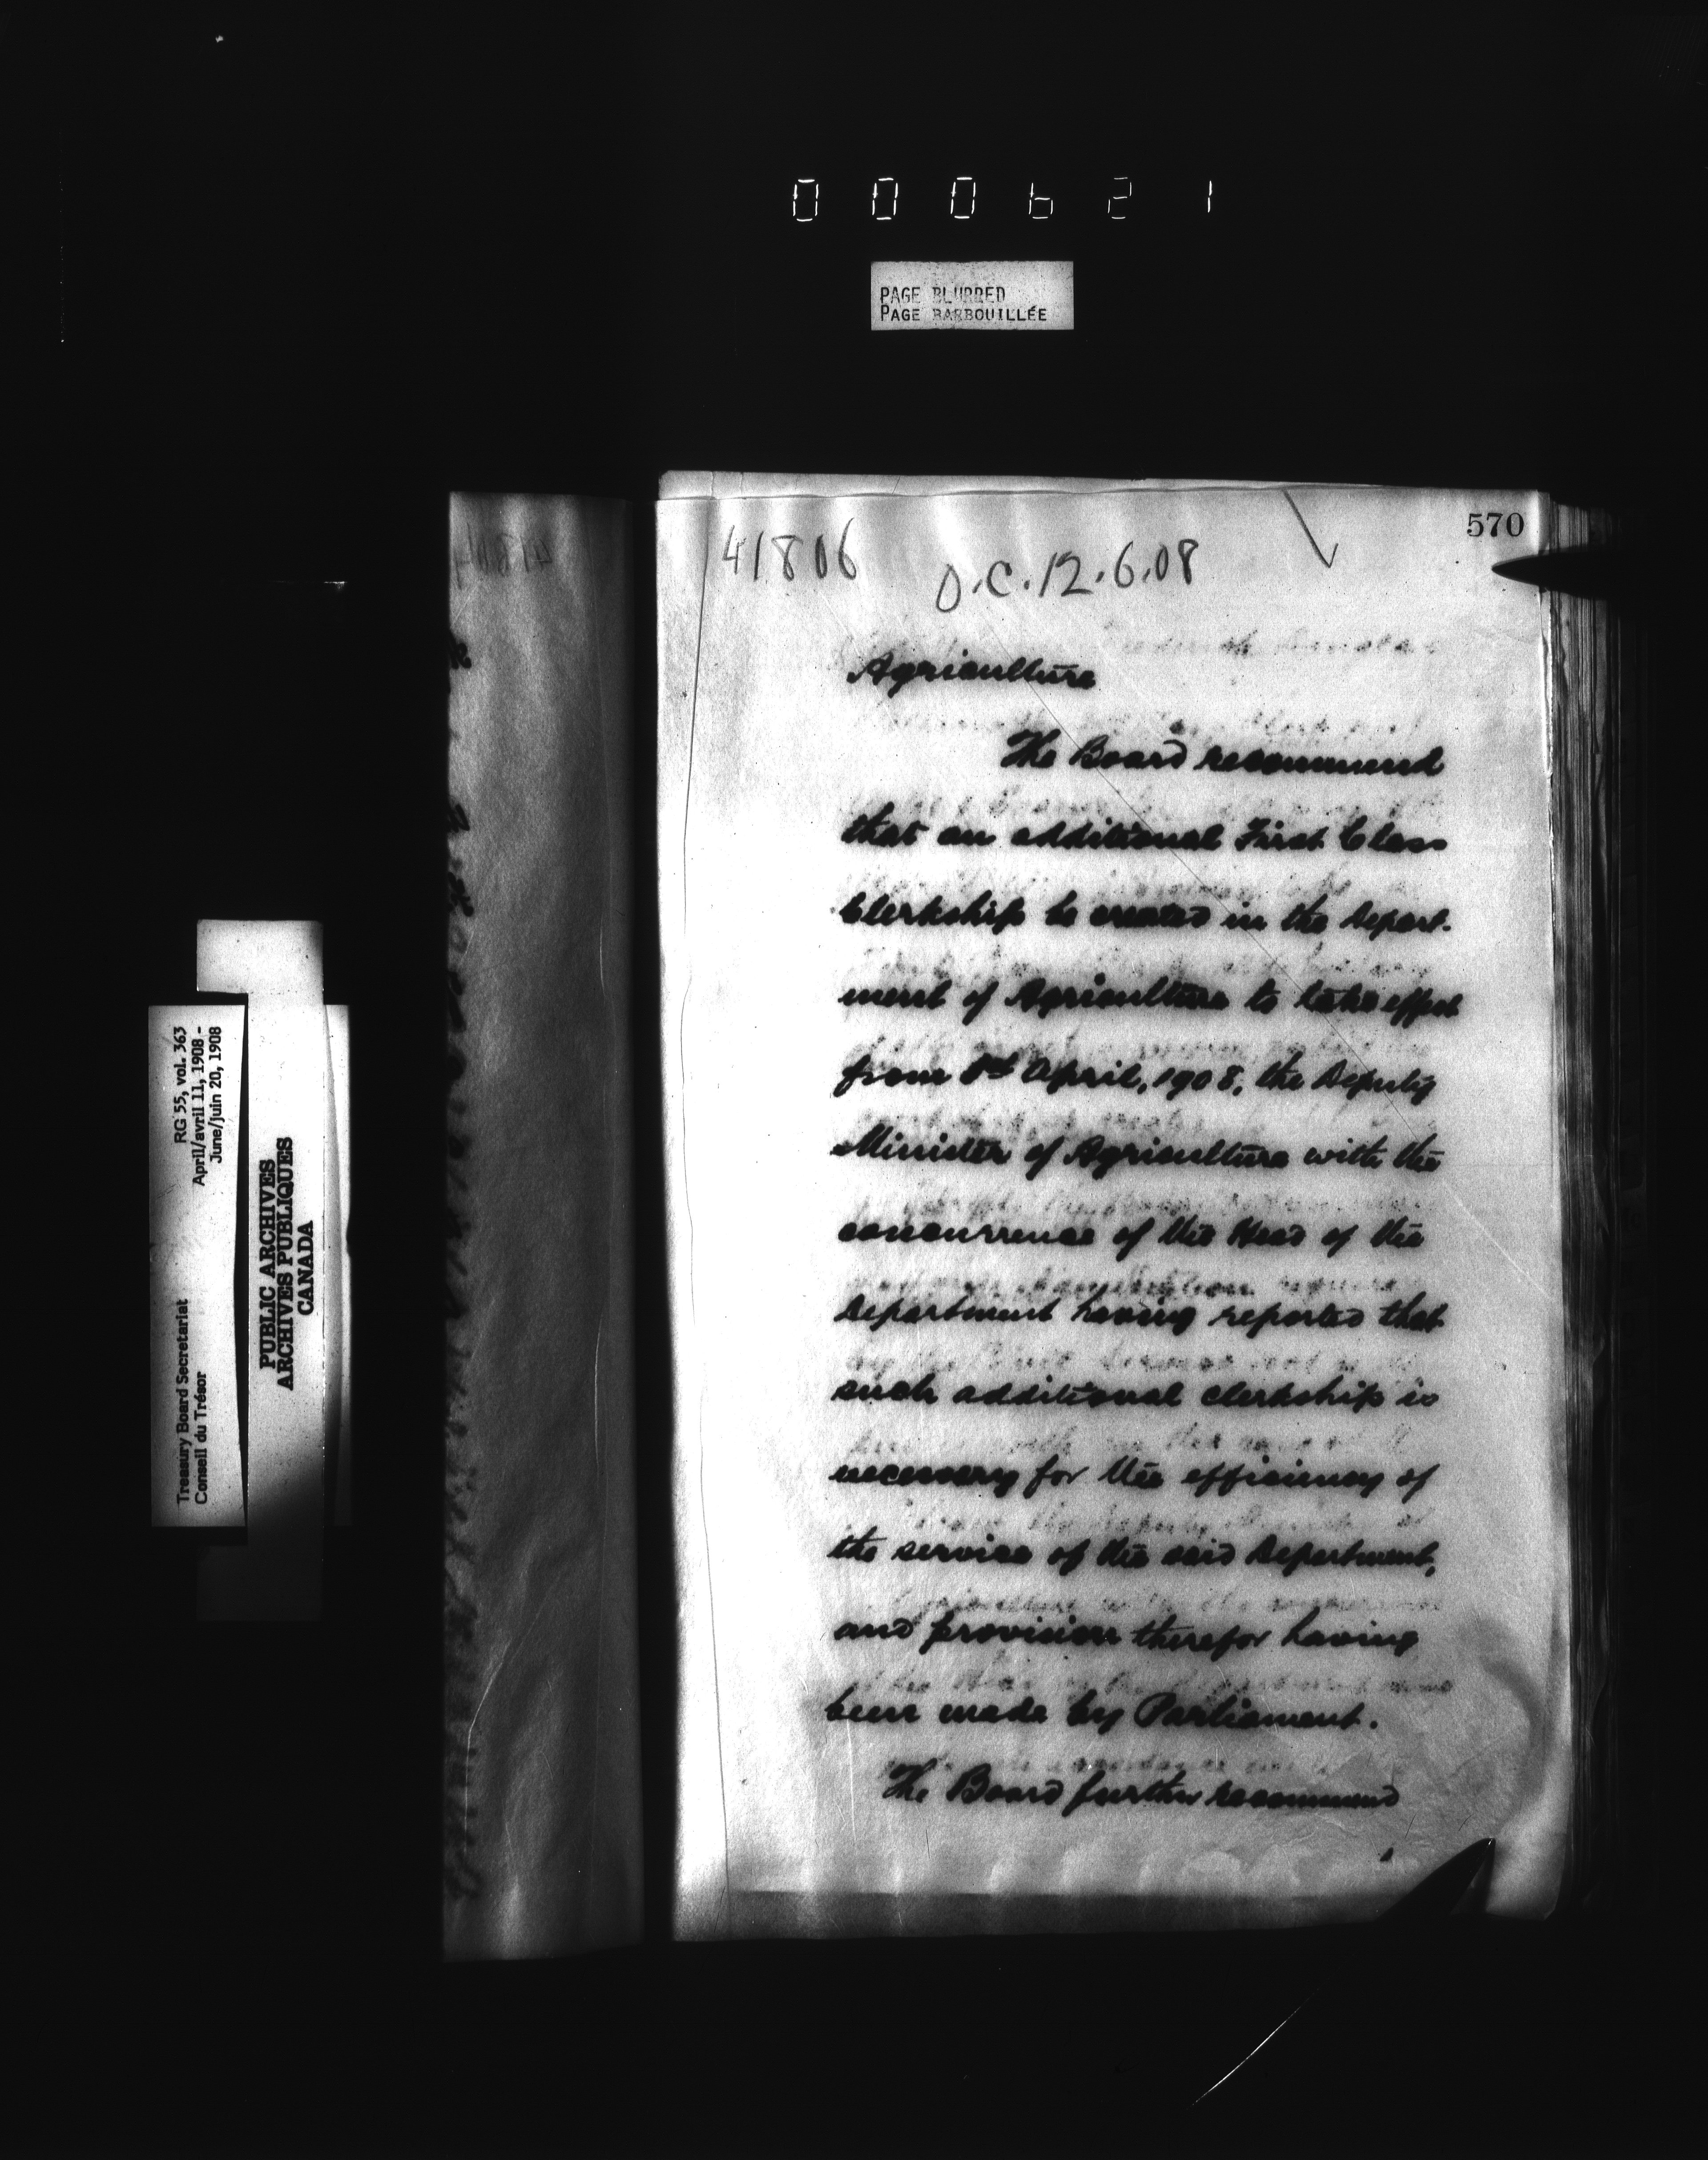 000621
PAGE BLURRED
PAGE BARBOUILLÉE
570
41806
O.C. 12.6.08
Agriculture
The Board recommend
that an additional First Class
Clerkship be created in the Depart-
ment of Agriculture to take effect
from 1st April, 1908, the Deputy
Minister of Agriculture with the
concurrence of the Head of the
Department having reported that
such additional clerkship is
necessary for the efficiency of
the service of the said Department,
and provision therefor having
been made by Parliament.
The Board further recommend
Treasury Board Secretariat
Conseil du Trésor
RG 55, vol. 363
April/avril 11, 1908 -
June/juin 20, 1908
PUBLIC ARCHIVES
ARCHIVES PUBLIQUES
CANADA